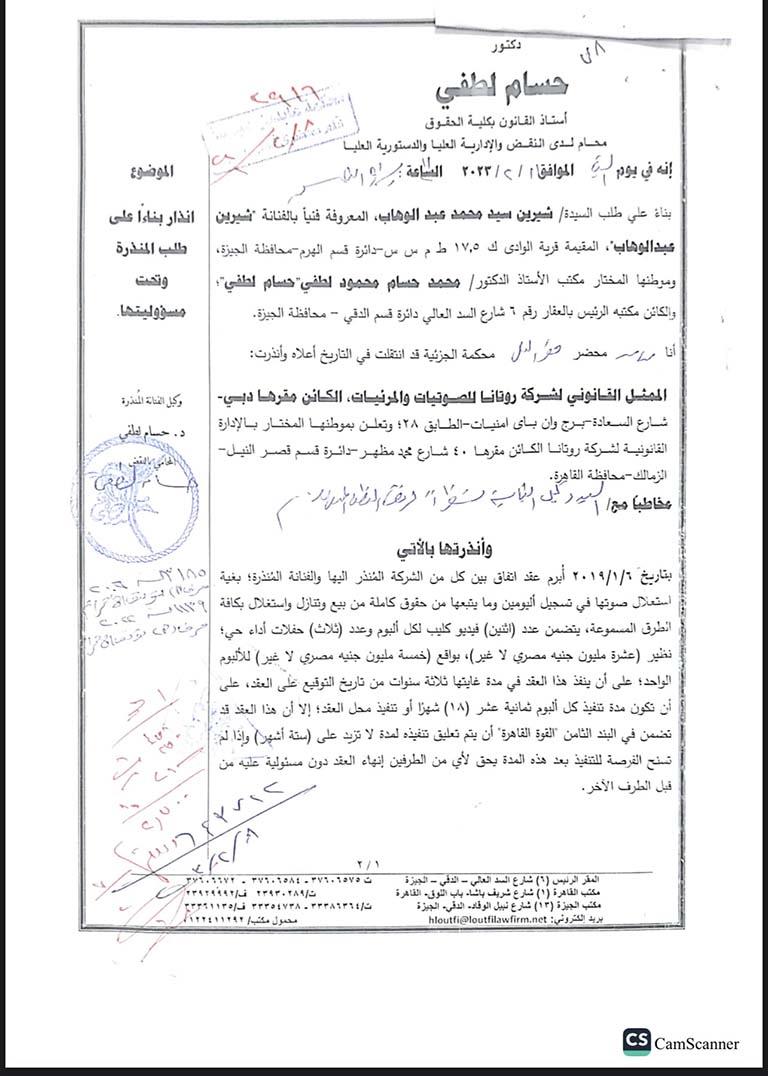 دكتور
حسام لطفي
أستاذ القانون بكلية الحقوق
محام لدى النقض والإدارية العليا والدستورية العليا
إنه في يوم الموافق ١/ ٢/ ٢٠٢٣ الساعة
الموضوع
انذار بناءاً على
طلب المنذرة
وتحت
مسؤوليتها.
بناءً علي طلب السيدة/ شيرين سيد محمد عبد الوهاب، المعروفة فنياً بالفنانة "شيرين
عبدالوهاب"، المقيمة قرية الوادى ك ١٧,٥ ط م س س-دائرة قسم الهرم-محافظة الجيزة،
وموطنها المختار مكتب الأستاذ الدكتور/ محمد حسام محمود لطفي"حسام لطفي"؛
والكائن مكتبه الرئيس بالعقار رقم ٦ شارع السد العالي دائرة قسم الدقي – محافظة الجيزة.
أنا محضر محكمة الجزئية قد انتقلت في التاريخ أعلاه وأنذرت:
الممثل القانوني لشركة روتانا للصوتيات والمرئيات، الكائن مقرها دبي-
شارع السعادة-برج وان باى امنيات-الطابق ٢٨؛ وتعلن بموطنها المختار بالإدارة
القانونية لشركة روتانا الكائن مقرها ٤٠ شارع محمد مظهر-دائرة قسم قصر النيل-
الزمالك-محافظة القاهرة.
مخاطباً مع/
وكيل الفنانة المُنذرة
د. حسام لطفي
المحامي بالنقض
وأنذرتها بالآتي
بتاريخ ٢٠١٩/١/٦ أبرم عقد اتفاق بين كل من الشركة المُنذر اليها والفنانة المُنذرة؛ بغية
استغلال صوتها في تسجيل ألبومين وما يتبعها من حقوق كاملة من بيع وتنازل واستغلال بكافة
الطرق المسموعة، يتضمن عدد (اثنين) فيديو كليب لكل ألبوم وعدد (ثلاث) حفلات أداء حي؛
نظير (عشرة مليون جنيه مصري لا غير)، بواقع (خمسة مليون جنيه مصري لا غير) للألبوم
الواحد؛ على أن ينفذ هذا العقد في مدة غايتها ثلاثة سنوات من تاريخ التوقيع على العقد، على
أن تكون مدة تنفيذ كل ألبوم ثمانية عشر (١٨) شهرًا أو تنفيذ محل العقد؛ إلا أن هذا العقد قد
تضمن في البند الثامن "القوة القاهرة" أن يتم تعليق تنفيذه لمدة لا تزيد على (ستة أشهر) وإذا لم
تسنح الفرصة للتنفيذ بعد هذه المدة يحق لأي من الطرفين إنهاء العقد دون مسئولية عليه من
قبل الطرف الآخر.
٢/١
المقر الرئيس (٦) شارع السد العالي – الدقي – الجيزة ت ٣٧٦٠٦٥٧٥ - ٣٧٦٠٦٥٨٤ - ٣٧٦٠٦٦٧٢
مكتب القاهرة (١) شارع شريف باشا- باب اللوق- القاهرة ت/٢٣٩٣٠٢٨٩ ف/٢٣٩٢٩٩٩٢
مكتب الجيزة (١٣) شارع نبيل الوقاد- الدقي- الجيزة ت/٣٣٣٨٦٣٦٤ - ٣٣٣٥٤٧٣٨ ف/٣٣٣٦١١٣٥
بريد إلكتروني: hloutfi@loutfilawfirm.net محمول مكتب/٠١٢٢٤١١٢٩٢
CS CamScanner